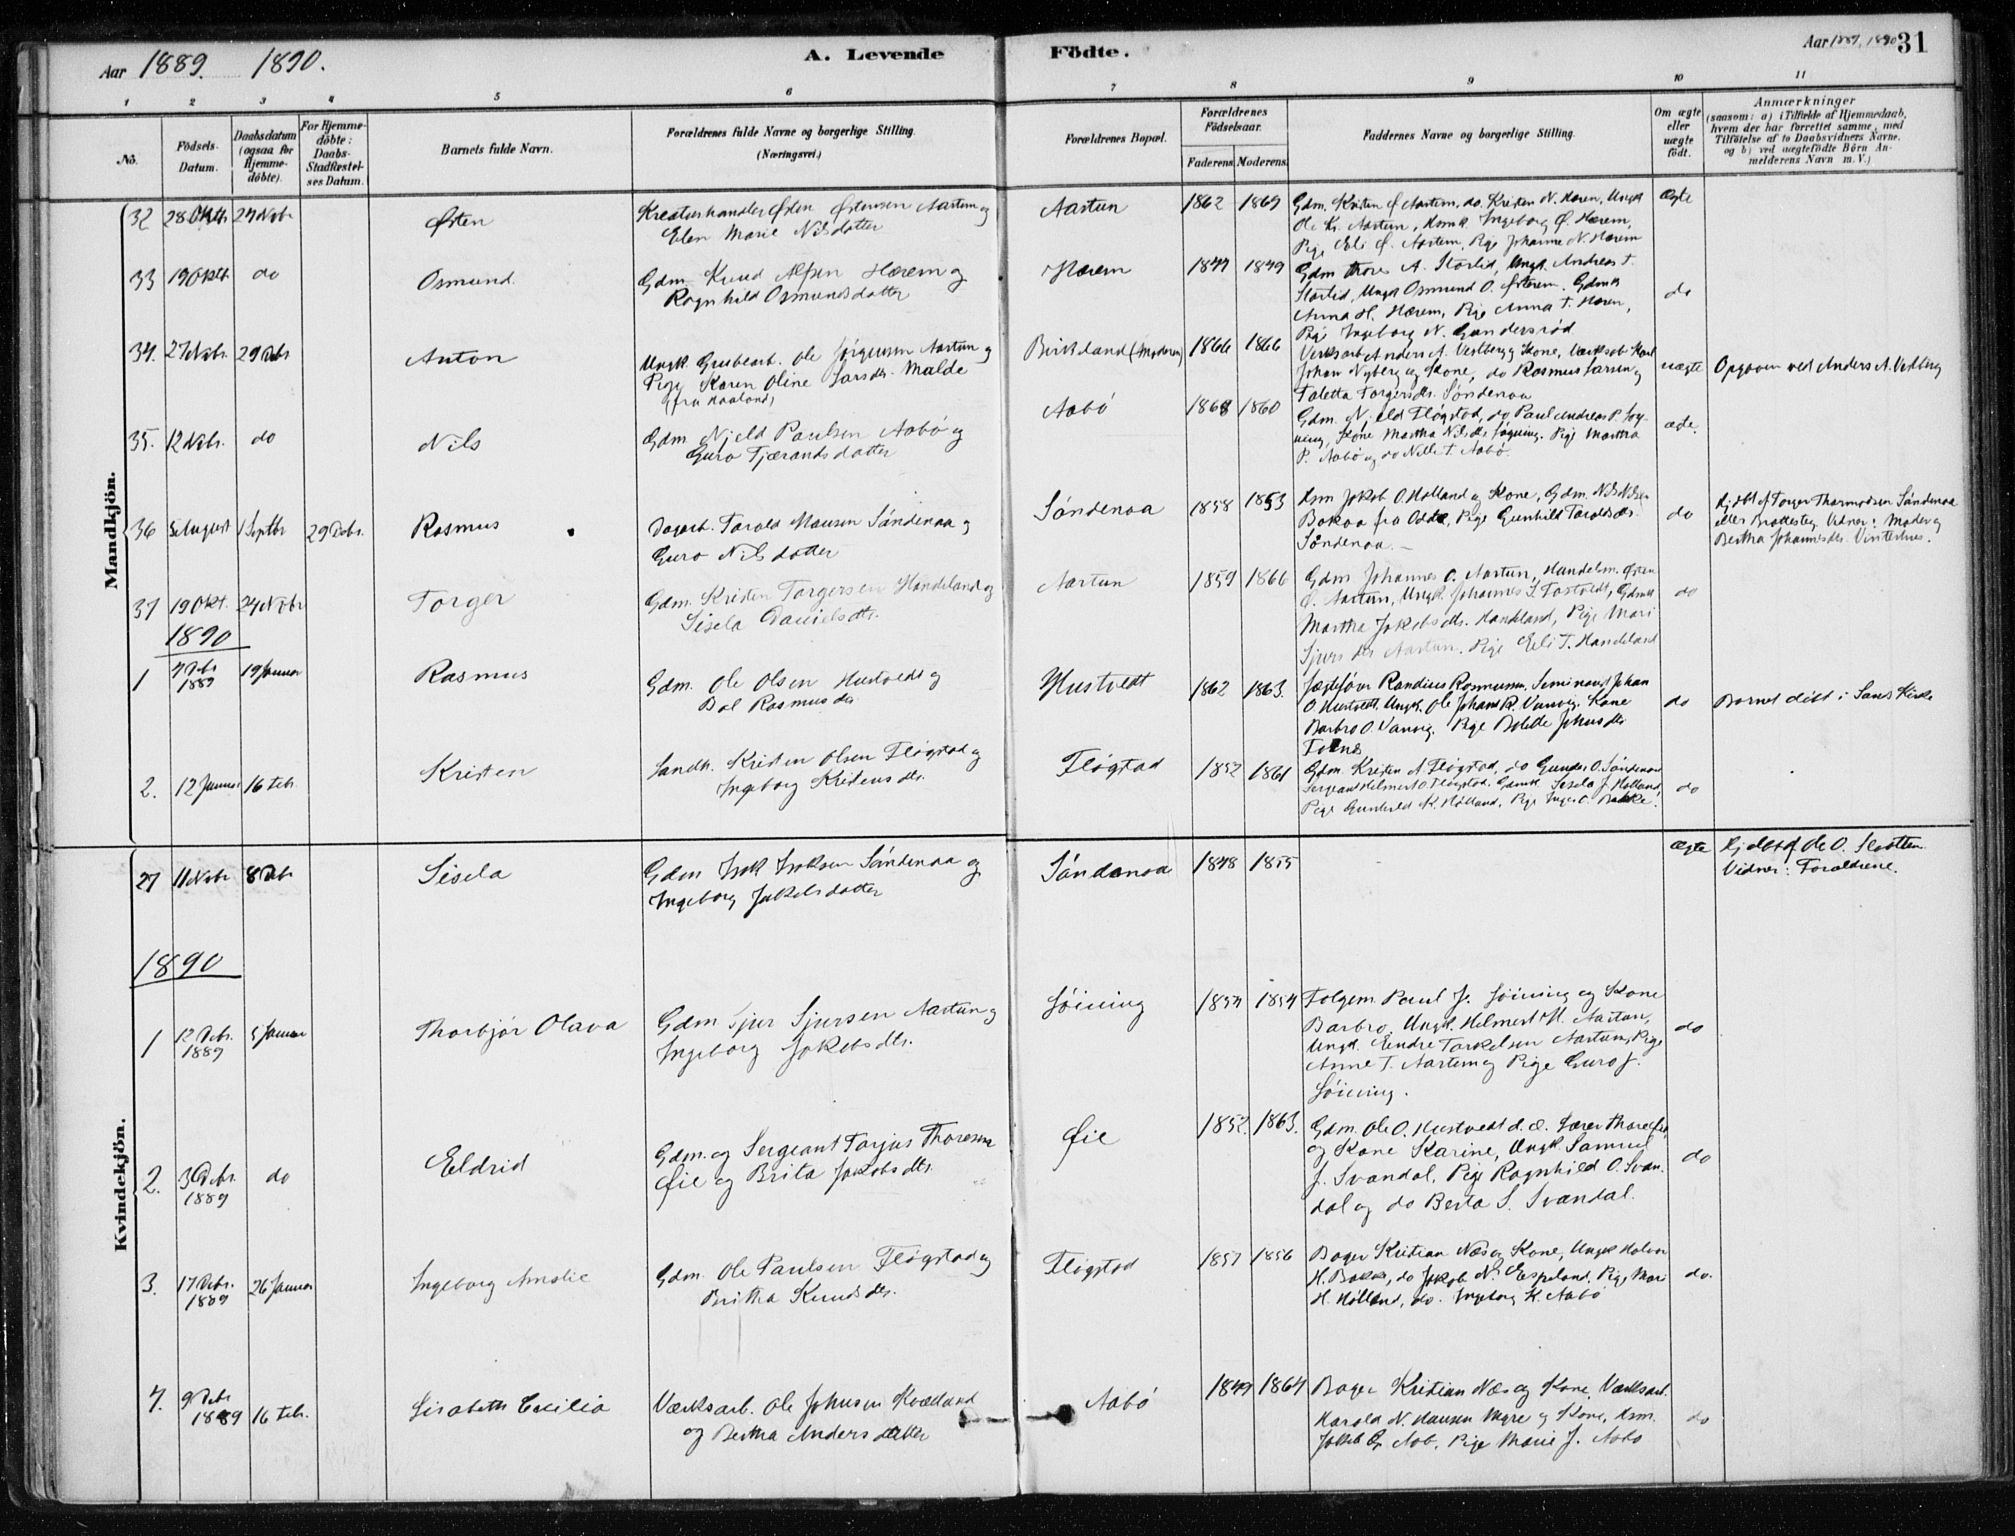 Aar 1889. 1890.
A. Levende Födte.
Aar 1889, 1890 31
1 2 3 4 5 6 7 8 9 10 11
No.
Födsels-Datum.
Daabsdatum (ogsaa for Hjemmedöbte).
For Hjemmedöbte: Daabs-Stadfæstelses Datum.
Barnets fulde Navn.
Forældrenes fulde Navne og borgerlige Stilling. (Næringsvei.)
Forældrenes Bopæl.
Forældrenes Födselsaar.
Faderens. Moderens.
Faddernes Navne og borgerlige Stilling.
Om ægte eller uægte födt.
Anmærkninger (saasom: a) i Tilfælde af Hjemmedaab, hvem der har forrettet samme, med Tilföielse af to Daabsvidners Navne, og b) ved uægtefödte Börn Anmelderens Navn m. V.)
Mandkjön.
32 28 Oktb 24 Nvbr Østen
Kreaturhandler Østen Østensen Aartun og
Elen Marie Nilsdatter
Aartun 1862 1869
Gdm. Kristen Ø Aartun, do. Kristen N. Hærem, Ungk
Ole Kr. Aartun, Kone Ingeborg Ø. Hærem,
Pige Eli Ø. Aartun, Pige Johanne N. Hærem
Ægte
33 19 Oktb. do Osmund
Gdm. Knud Hærem og
Ragnhild Osmundsdatter
Hærem 1844 1849
Gdm Thore A. Storlid, Ungk. Andreas T.
Storlid, Ungk Osmund O. Gdmk
Anna H. Hærem, Pige Anna T. Hærem,
Pige Ingeborg N. Gundersrød
do
34. 27 Nvbr. 29 Dcbr Anton
Ungk. Grubearb. Ole Jørgensen Aartun og
Pige Karen Oline Larsdtr. Malde
(fra Haaland)
Birkeland (Moderen) 1866 1866
Verksarb Anders A. Vestberg og Kone, Værksarb Karl
Johan Nyberg og Kone, do Rasmus Larsen og
Taletta Torgersdtr. Søndenaa
uægte
Opgaven ved Anders A. Vestberg
35. 12 Nvbr. do Nils
Gdm Njeld Paulsen Aabø og
Guro Tjærandsdatter
Aabø 1868 1860
Gdm. Njeld Fløgstad, do Paul Andreas P. Søi-
ning, Kone Martha Nilsdtr Søining. Pige Martha
P. Aabø og do Nille T. Aabø.
ægte.
36 5 August 1 Septbr 29 Dcbr. Rasmus
Dagarb. Tarald Hansen Søndenaa og
Guro Nilsdatter
Søndenaa 1858 1853
Hsm Jakob O. Holland og Kone, Gdm. Nils Nilsen
Bakaa fra Odde, Pige Gunhild Taraldsdtr.
Søndenaa.
do
Hjdbt af Torger Thormodsen Søndenaa
eller Brattesteg Vidner: Moder og
Bertha Johannesdtr. Vinterhus.
37 19 Okt. 24 Nvbr Torger
Gdm. Kristen Torgersen Handeland og
Sisela Danielsdtr.
Aartun 1859 1866
Gdm Johannes O. Aartun, Handelsm. Østen
Ø. Aartun, Ungk. Johannes S. Tostvedt, Gdmk
Martha Jakobsdtr. Handeland, Pige Mari
Sjursdtr Aartun. Pige Eli T. Handeland
do
1890
1 7 Dcbr 1889 19 Januar Rasmus
Gdm. Ole Olsen Hustvedt og
Bol Rasmusdtr
Hustvedt 1862 1863.
Rasmussen, Seminarist Johan
O Hustvedt, Ungk. Ole Johan R. Vanvig, Kone
Barbro O. Vanvig. Pige Bolette Johnsdtr
Fornes
do
Barnet døbt i Sands Kirke
2. 12 Januar 16 Febr. Kristen
Landh. Kristen Olsen Fløgstad og
Ingeborg Kristensdtr.
Fløgstad 1852 1861
Gdm. Kristen N. Fløgstad, do Gunder O. Søndenaa
Sergeant Helmert O. Fløgstad. Gdmk Sisela J. Holland,
Pige Gunhild K. Holland, Pige Inger O. Bakke.
do
Kvindekjön.
27 11 Nvbr 8 Dcbr Sisela
Gdm Isak Isaksen Søndenaa og
Ingeborg Jakobsdatter
Søndenaa 1848 1855
Ægte
Hjdbt af Ole O. Slotten
Vidner: Forældrene.
1890
1 12 Dcbr. 1889 5 Januar Thorbjør Olava
Gdm Sjur Sjursen Aartun og
Ingeborg Jakobsdtr.
Søining 1854 1854
Folgem. Paul J. Søining og Kone
Barbro, Ungk. Helmert H. Aartun,
Ungk. Endre Torkelsen Aartun, Pige
Anne T. Aartun og Pige Guro J.
Søining.
do
2. 30 Dcbr. 1889 do Eldrid
Gdm. og Sergeant Tarjus Thoresen
Øie og Brita Jakobsdtr.
Øie 1852. 1863.
Gdm. Ole O. Hustvedt d. æ. Lærer Thore Øie,
og Kone Karine, Ungk Samuel
J. Svandal, Pige Ragnhild O. Svan-
dal og do Berta S. Svandal.
do
3. 17 Dcbr. 1889 26 Januar Ingeborg Amalie
Gdm. Ole Paulsen Fløgstad og
Britha Knudsdtr.
Fløgstad 1857 1856
Bager Kristian Næs og Kone, Ungk Halvor
H. Bakka, do Jakob N. Espeland. Pige Mari
H. Holland, do. Ingeborg K. Aabø
do.
4. 9 Dcbr 1889 16 Febr. Lisabeth Cecilia
Værksarb. Ole Johnsen Kvælland
og Bertha Andersdatter
Aabø 1849 1864
Bager Kristian Næs og Kone, Værksarb.
Harald N. Hansen Myre og Kone, Hsm.
Jakob G. Aab, Pige Marie J. Aabø
do